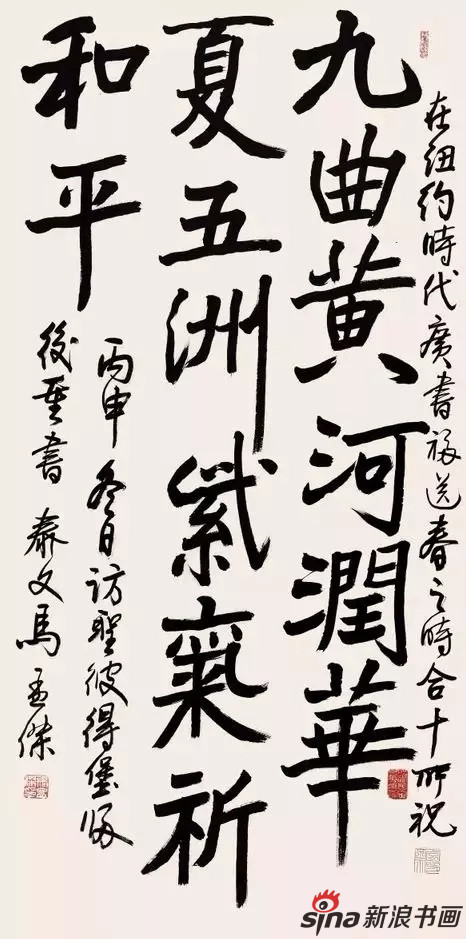 在紐約時代廣書福送春之時合十所祝
九曲黄河潤華
夏五洲紫氣祈
和平
丙申冬日訪聖彼得堡歸
後重書 泰文馬孟傑
sina 新浪书画